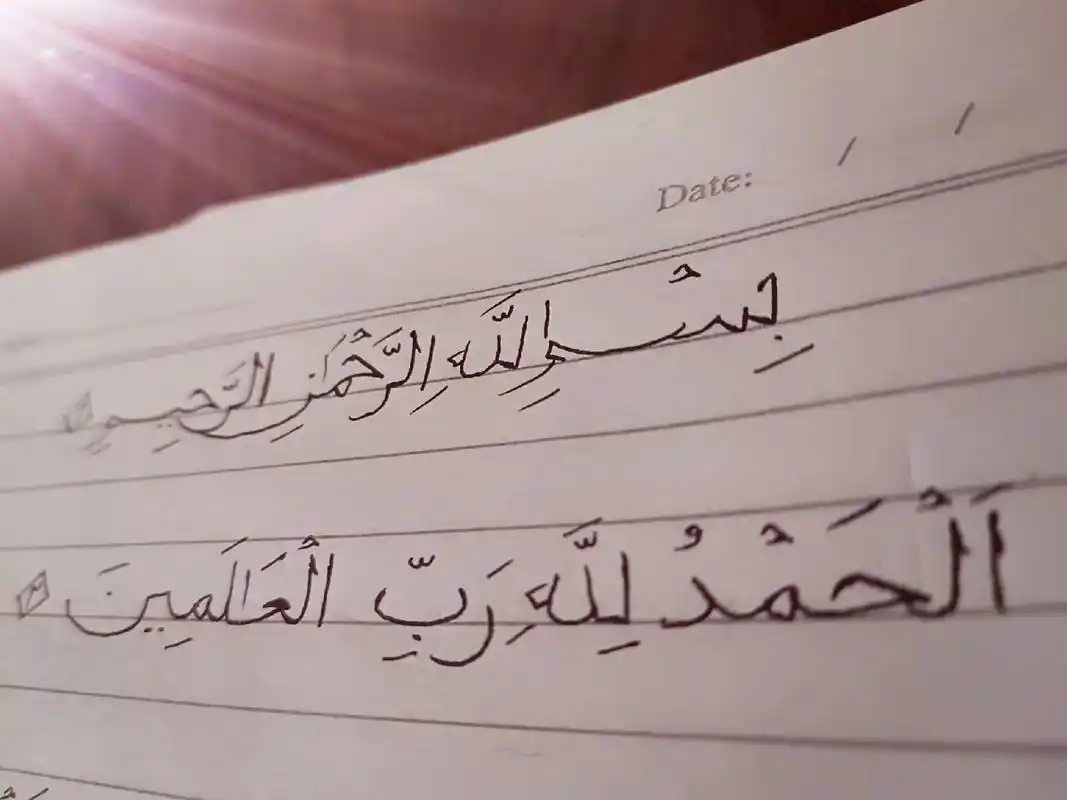 Date: / /
بِسْمِ اللّٰهِ الرَّحْمٰنِ الرَّحِيمِ
اَلْحَمْدُ لِلّٰهِ رَبِّ الْعَالَمِينَ ۝٢